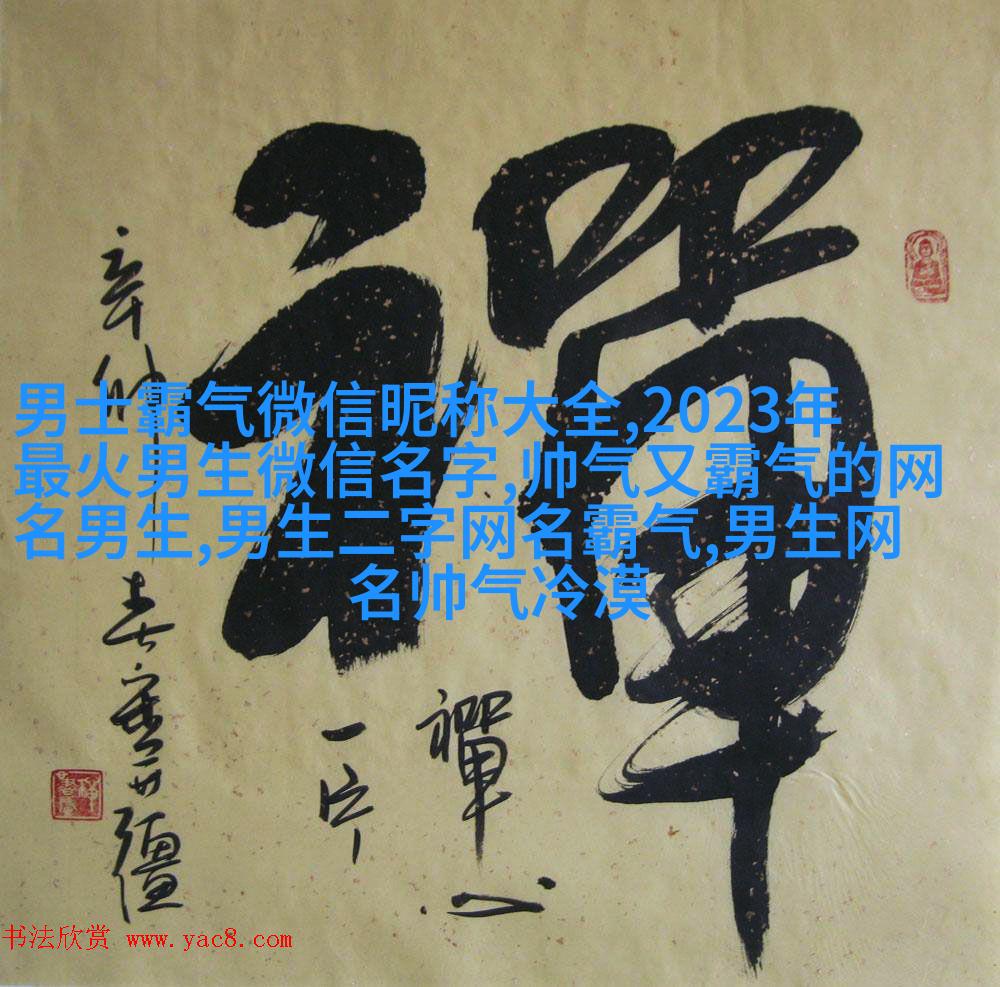 禪
男士霸气微信昵称大全,2023年
最火男生微信名字,帅气又霸气的网
名男生,男生二字网名霸气,男生网
名帅气冷漠
禪心
一片
辛卯
书法欣赏 www.yac8.com